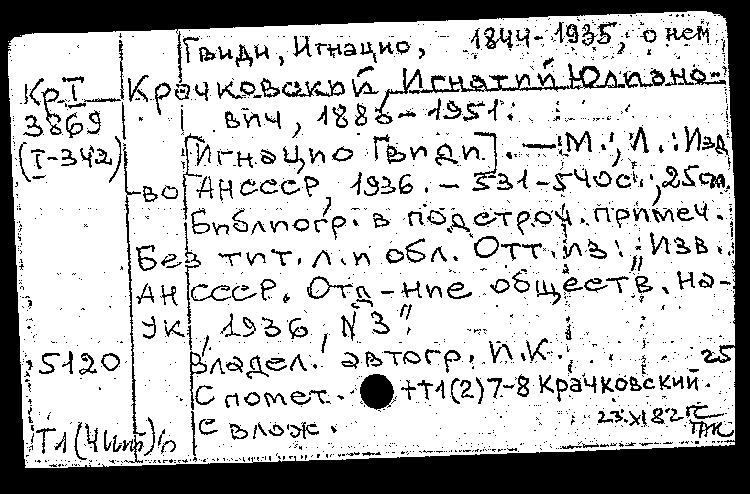 Гвиди, Игнацио, 1844-1935, о нем
КрI Крачковский, Игнатий Юлиано-
3869 вич, 1883-1951.
(I-342) [Игнацио Гвиди]. — М.; Л.: Изд
-во АНСССР, 1936. - 531-540с.; 25см.
Библиогр. в подстроч. примеч.
Без тит. л. и обл. Отт. из: „Изв.
АН СССР. Отд-ние обществ. на-
ук, 1936, №3".
5120 Владел. автогр. И.К. 25
С помет. ++1(2)7-8 Крачковский.
С влож. 23.XI82г